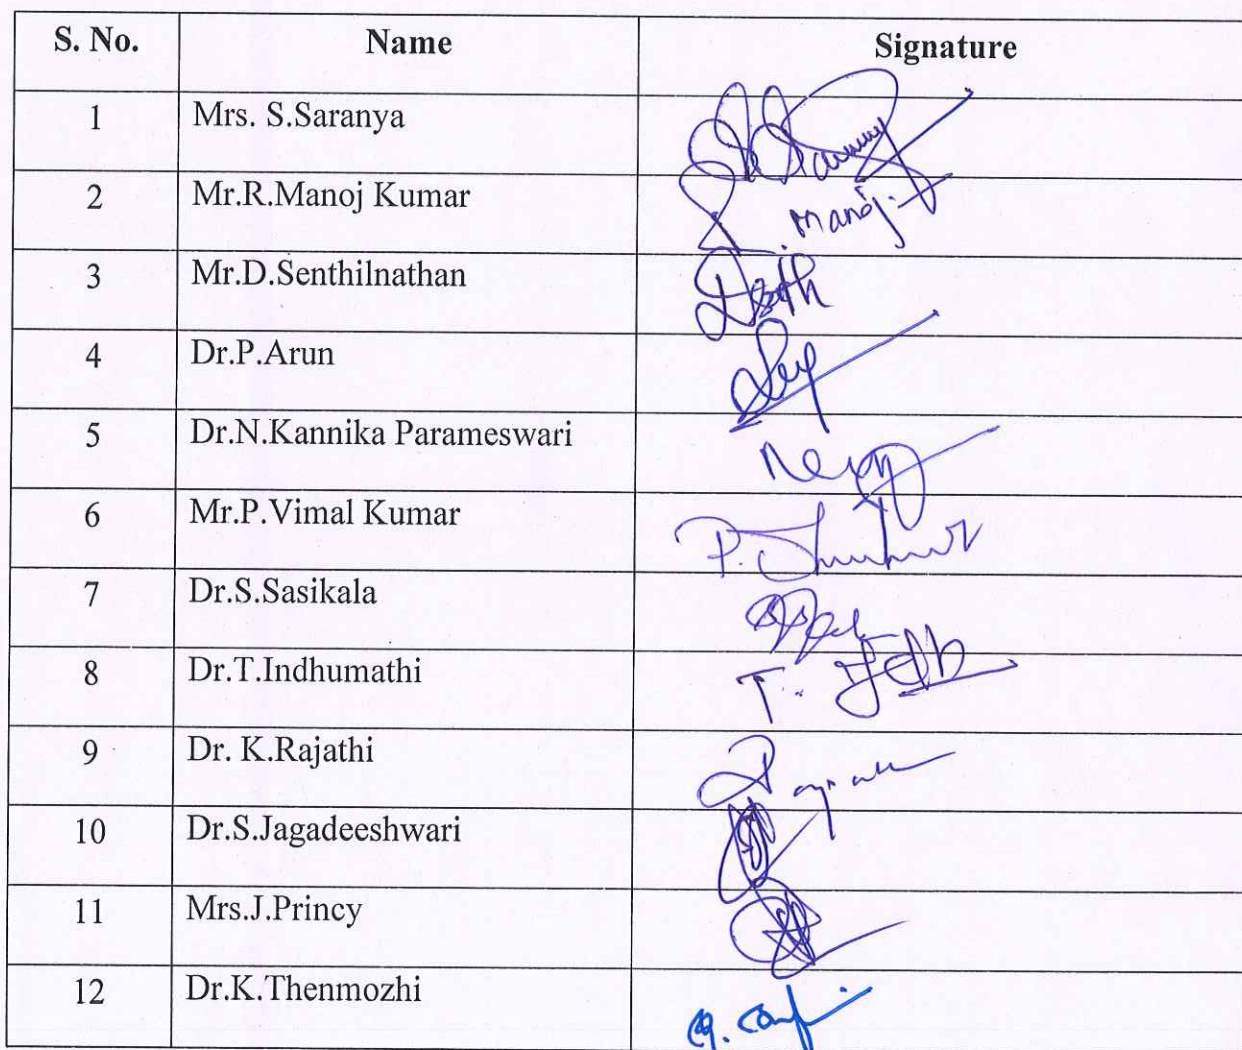 S. No. Name Signature
1 Mrs. S.Saranya
2 Mr.R.Manoj Kumar . Manoj.
3 Mr.D.Senthilnathan
4 Dr.P.Arun
5 Dr.N.Kannika Parameswari
6 Mr.P.Vimal Kumar P.
7 Dr.S.Sasikala
8 Dr.T.Indhumathi T.
9 Dr. K.Rajathi
10 Dr.S.Jagadeeshwari
11 Mrs.J.Princy
12 Dr.K.Thenmozhi